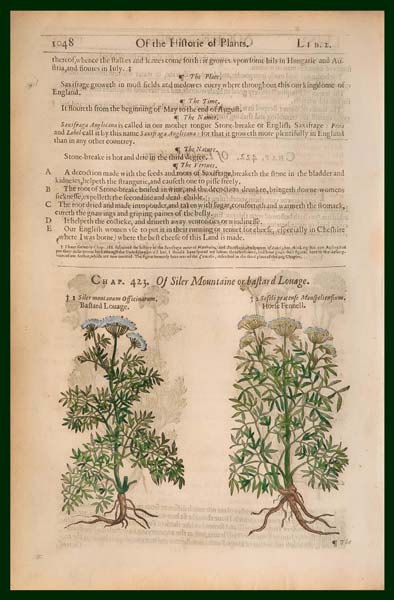 1048 Of the Historie of Plants. LIB. 2.
thereof, whence the stalkes and leaves come forth: it growes upon some hils in Hungarie and Au-
stria, and floures in Iuly. ‡
¶ The Place.
Saxifrage groweth in most fields and medowes every where throughout this our kingdome of
England.
¶ The Time.
It floureth from the beginning of May to the end of August.
¶ The Names.
Saxifraga Anglicana is called in our mother tongue Stone-breake or English Saxifrage: Pena
and Lobel call it by this name Saxifraga Anglicana: for that it groweth more plentifully in England
than in any other countrey.
¶ The Nature.
Stone-breake is hot and drie in the third degree.
¶ The Vertues.
A A decoction made with the seeds and roots of Saxifrage, breaketh the stone in the bladder and
kidneies, helpeth the strangurie, and causeth one to pisse freely.
B The root of Stone-breake boiled in wine, and the decoction drunken, bringeth downe womens
sicknesse, expelleth the secondine and dead childe.
C The root dried and made into pouder, and taken with sugar, comforteth and warmeth the stomack,
cureth the gnawings and griping paines of the belly.
D It helpeth the collicke, and driveth away ventosities or windinesse.
E Our English women use to put it in their running or rennet for cheese, especially in Cheshire
(where I was borne) where the best cheese of this Land is made.
CHAP. 423. Of Siler Mountaine or bastard Lovage.
‡ 1 Siler montanum Officinarum.
Bastard Lovage.
‡ 2 Seseli pratense Monspeliensium.
Horse Fennell.
¶ The